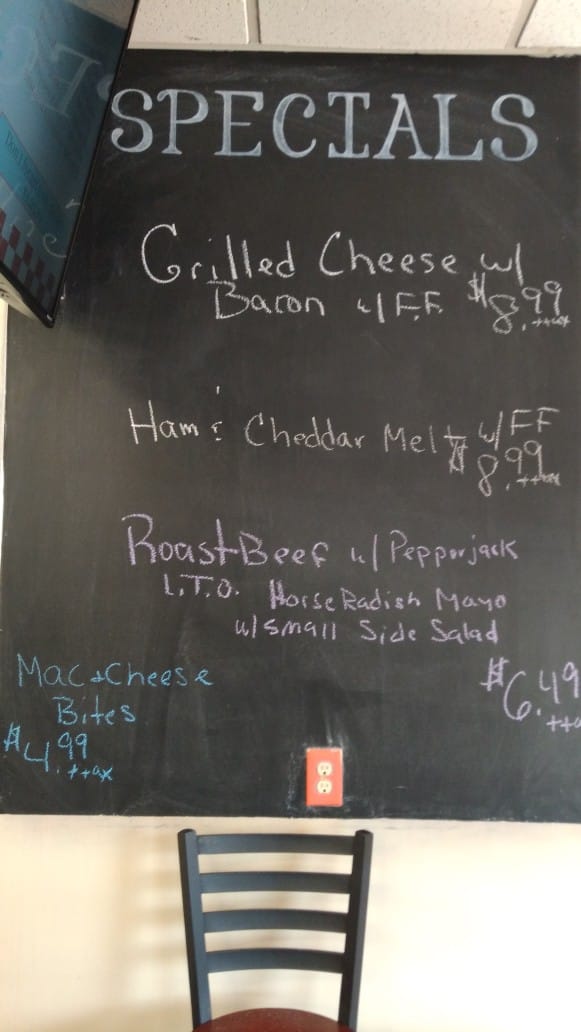 SPECIALS
Grilled Cheese w/
Bacon w/ F.F. $8.99 + tax
Ham & Cheddar Melt w/ FF
$8.99 + tax
Roast Beef w/ Pepperjack
L.T.O. Horse Radish Mayo
w/ small Side Salad
$6.49
Mac & Cheese
Bites
$4.99
+ tax